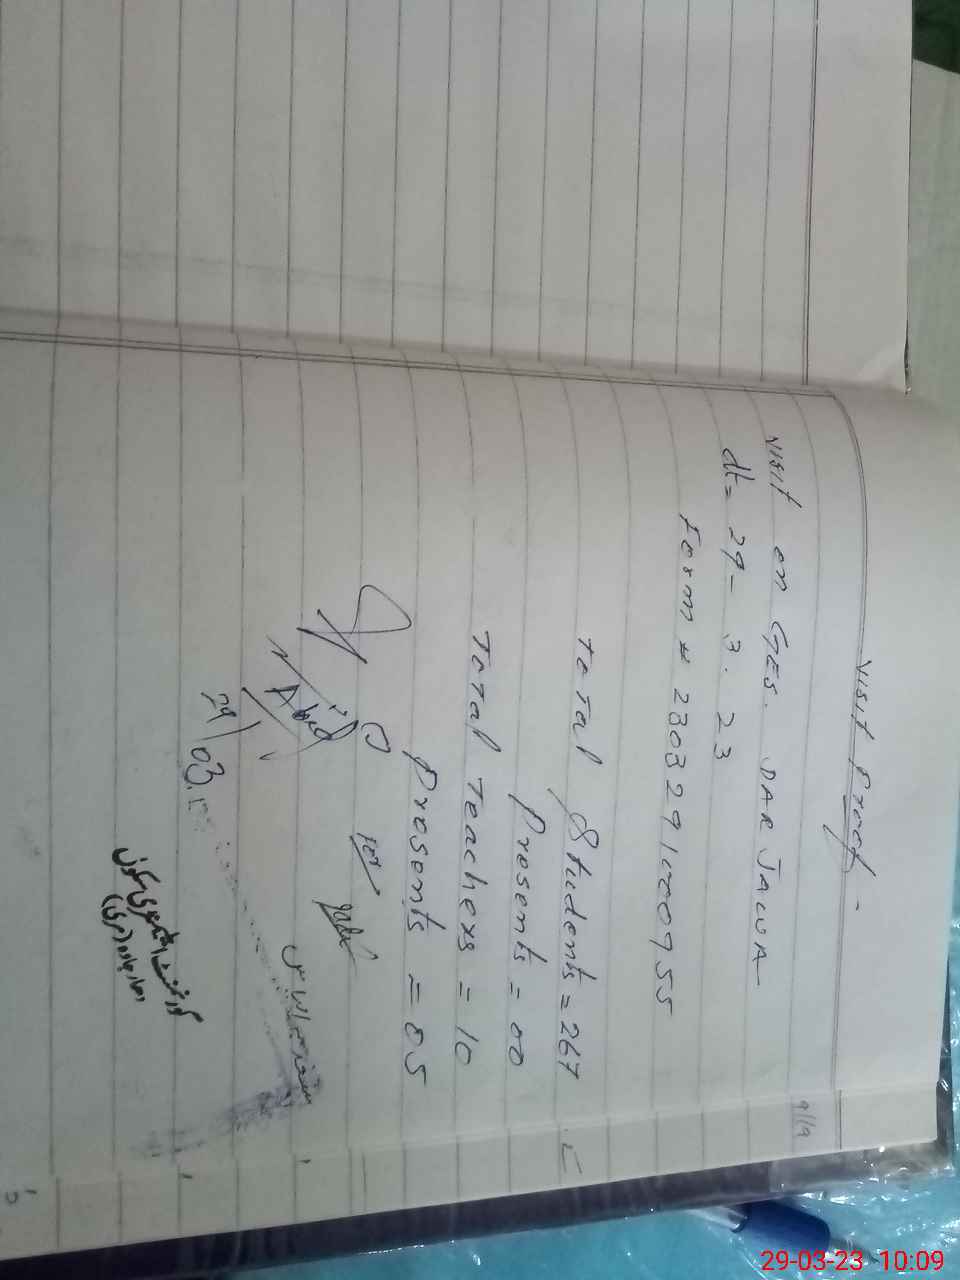 Visit Proof -
Visit on GES. DAR JAWA
dt = 29 - 3. 23
Form # 230329100955
Total Students = 267
Presents = 00
Total Teachers = 10
Presents = 05
Abid
29/03
گورنمنٹ ایلیمنٹری سکول
29-03-23 10:09